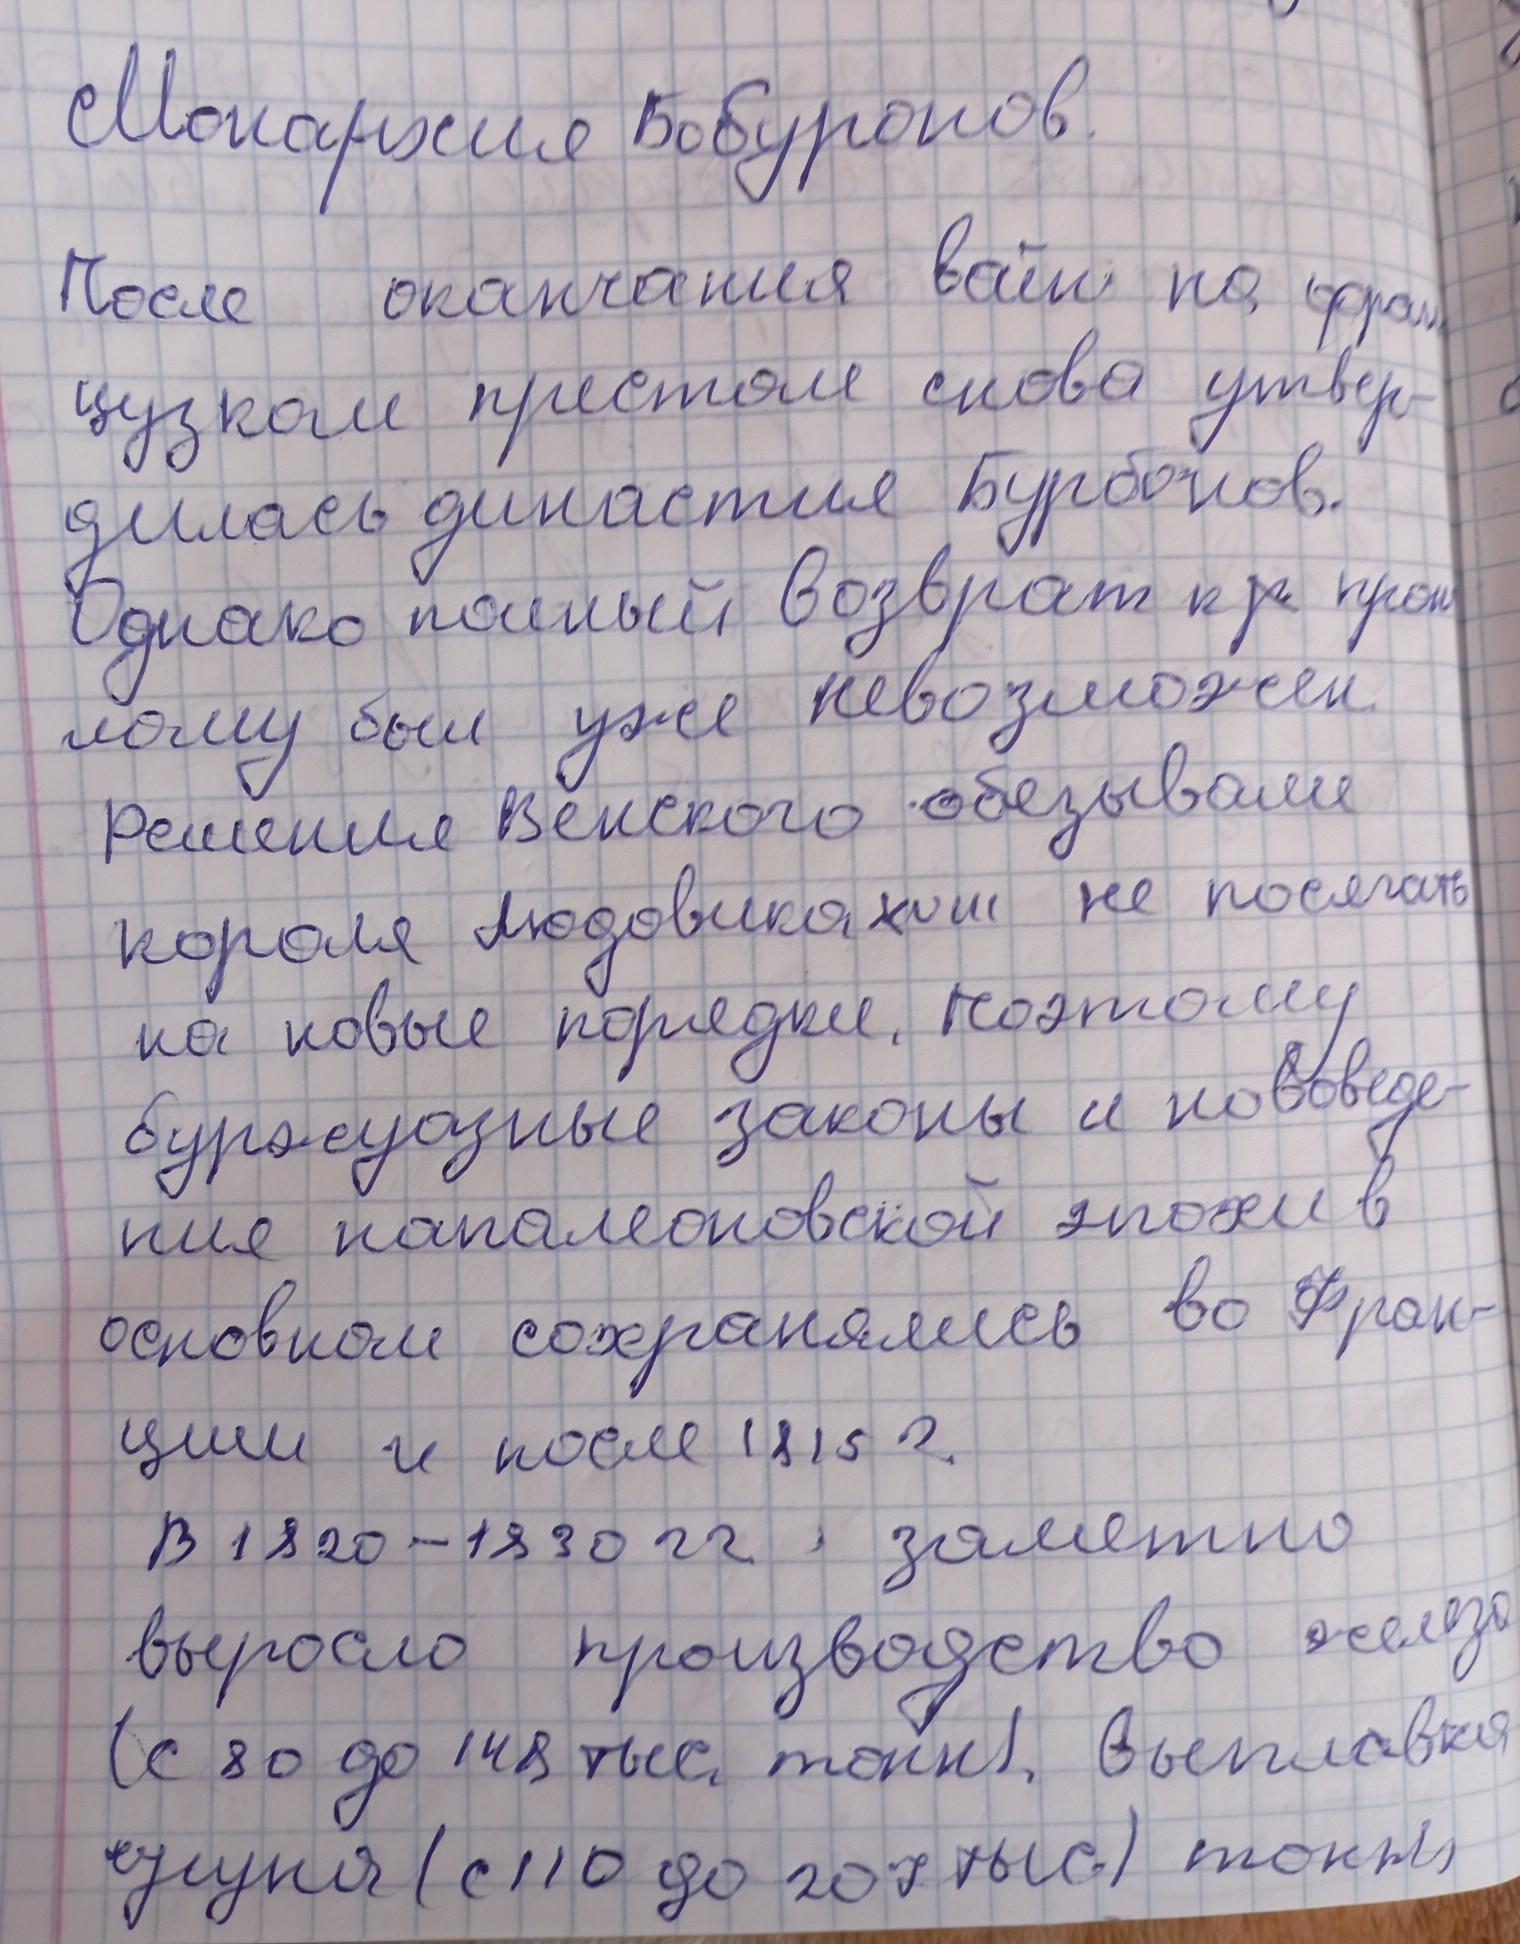 Монархия Бобуронов.
После оканчания вайн на фран
цузком престоле снова утвер-
дилась династия Бурбонов.
Однако полный возврат к прош
лому был уже невозможен.
Решения Венского обезывали
короля Людовика XVIII не посягать
на новые порядки. Поэтому
буржуазные законы и нововведе-
ния напалеоновской эпохи в
основном сохранялись во Фран-
ции и после 1815 г.
В 1820-1830 гг. заметно
выросло производство железа
(с 80 до 148 тыс. тонн). Выплавка
чугуна (с 110 до 207 тыс.) тонны